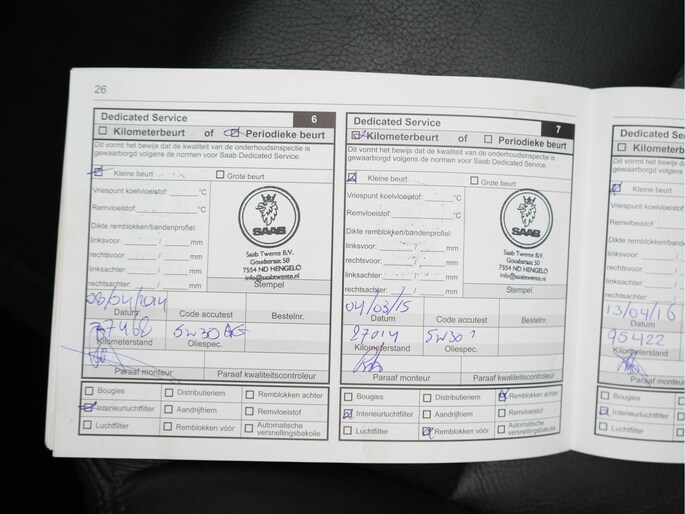 26
Dedicated Service 6
Kilometerbeurt of Periodieke beurt
Dit vormt het bewijs dat de kwaliteit van de onderhoudsinspectie is
gewaarborgd volgens de normen voor Saab Dedicated Service.
Kleine beurt Grote beurt
Vriespunt koelvloeistof: °C
Remvloeistof: °C
Dikte remblokken/bandenprofiel:
linksvoor: / mm
rechtsvoor: / mm
linksachter: / mm
rechtsachter: / mm
SAAB
Saab Twente B.V.
Goudstraat 50
7554 ND HENGELO
info@saabtwente.nl
Stempel
08/04/2014
Datum Code accutest Bestelnr.
77468 5W30
Kilometerstand Oliespec.
Paraaf monteur Paraaf kwaliteitscontroleur
Bougies Distributieriem Remblokken achter
Interieurluchtfilter Aandrijfriem Remvloeistof
Luchtfilter Remblokken vóór Automatische
versnellingsbakolie
Dedicated Service 7
Kilometerbeurt of Periodieke beurt
Dit vormt het bewijs dat de kwaliteit van de onderhoudsinspectie is
gewaarborgd volgens de normen voor Saab Dedicated Service.
Kleine beurt Grote beurt
Vriespunt koelvloeistof: °C
Remvloeistof: °C
Dikte remblokken/bandenprofiel:
linksvoor: / mm
rechtsvoor: / mm
linksachter: / mm
rechtsachter: / mm
SAAB
Saab Twente B.V.
Goudstraat 50
7554 ND HENGELO
info@saabtwente.nl
Stempel
04/03/15
Datum Code accutest Bestelnr.
87014 5W30
Kilometerstand Oliespec.
Paraaf monteur Paraaf kwaliteitscontroleur
Bougies Distributieriem Remblokken achter
Interieurluchtfilter Aandrijfriem Remvloeistof
Luchtfilter Remblokken vóór Automatische
versnellingsbakolie
Dedicated Serv
Kilometerb
Dit vormt het bewijs
gewaarborgd volgen
Kleine beurt
Vriespunt koelvloeist
Remvloeistof:
Dikte remblokken/ba
linksvoor:
rechtsvoor:
linksachter:
rechtsachter:
13/04/16
Datum
95422
Kilometerstand
Paraaf mont
Bougies
Interieurluchtfilter
Luchtfilter